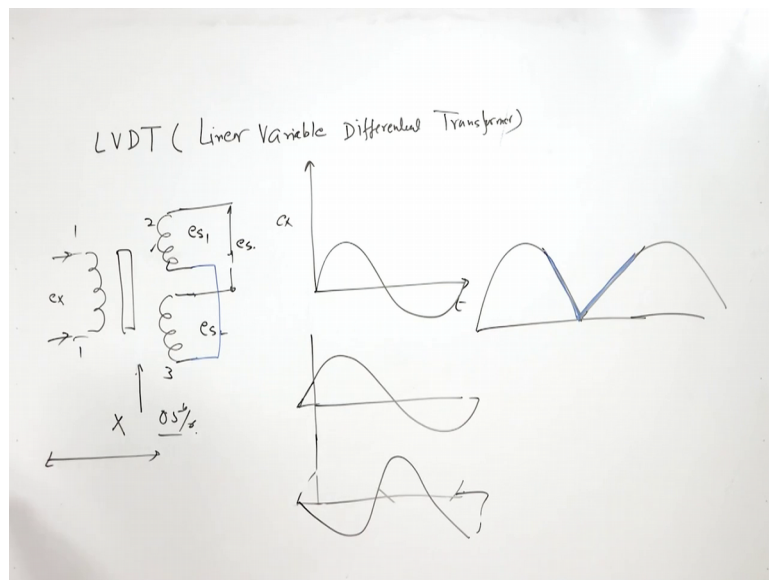 LVDT ( Liner Variable Differential Transformer)
1
2
es1
es.
ex
ex
t
1
es
3
X